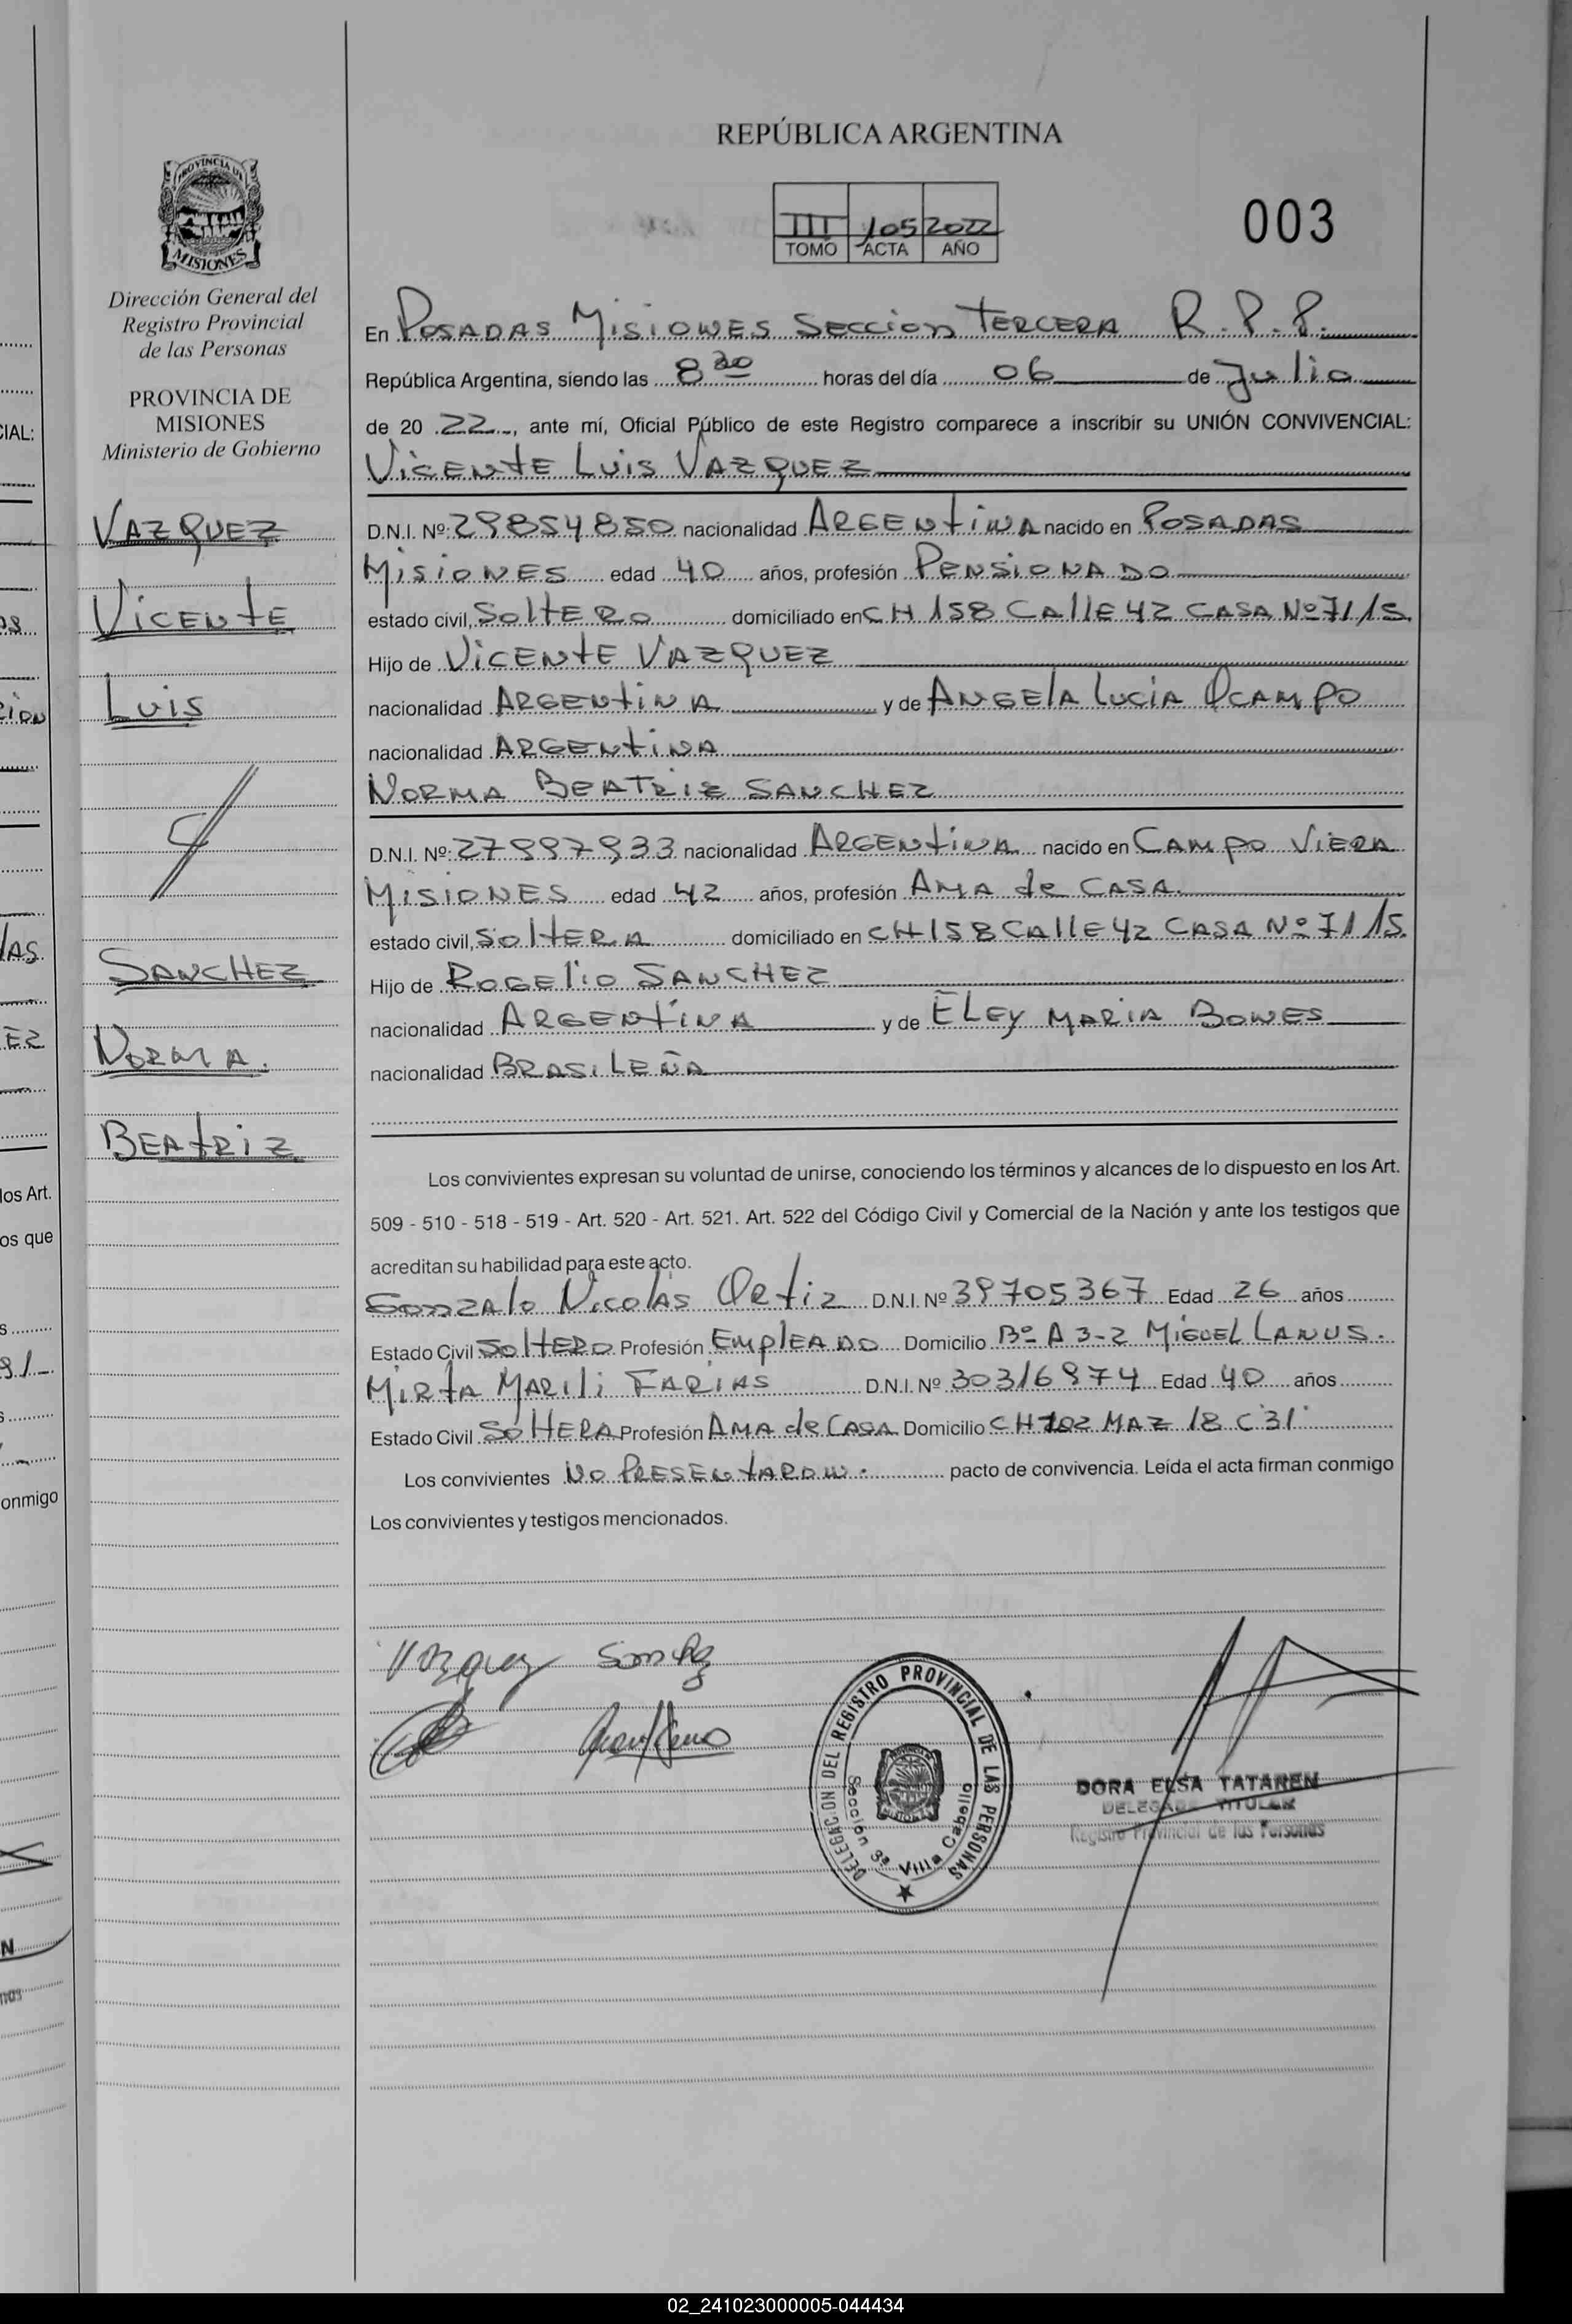 REPÚBLICA ARGENTINA
III 105 2022
TOMO ACTA AÑO
003
PROVINCIA DE
MISIONES
Dirección General del
Registro Provincial
de las Personas
PROVINCIA DE
MISIONES
Ministerio de Gobierno
VAZQUEZ
VICENTE
LUIS
SANCHEZ
NORMA.
BEATRIZ
En POSADAS MISIONES SECCION TERCERA R.P.P.
República Argentina, siendo las 8 30 horas del día 06 de Julio
de 20 22, ante mí, Oficial Público de este Registro comparece a inscribir su UNIÓN CONVIVENCIAL:
VICENTE LUIS VAZQUEZ
D.N.I. Nº: 29854850 nacionalidad ARGENTINA nacido en POSADAS
MISIONES edad 40 años, profesión PENSIONADO
estado civil, SOLTERO domiciliado en CH 158 CALLE 42 CASA Nº 7115.
Hijo de VICENTE VAZQUEZ
nacionalidad ARGENTINA y de ANGELA LUCIA OCAMPO
nacionalidad ARGENTINA
NORMA BEATRIZ SANCHEZ
D.N.I. Nº: 27997933 nacionalidad ARGENTINA nacido en CAMPO VIERA
MISIONES edad 42 años, profesión AMA de CASA.
estado civil, SOLTERA domiciliado en CH 158 CALLE 42 CASA Nº 7115.
Hijo de ROGELIO SANCHEZ
nacionalidad ARGENTINA y de ELEY MARIA BOWES
nacionalidad BRASILEÑA
Los convivientes expresan su voluntad de unirse, conociendo los términos y alcances de lo dispuesto en los Art.
509 - 510 - 518 - 519 - Art. 520 - Art. 521. Art. 522 del Código Civil y Comercial de la Nación y ante los testigos que
acreditan su habilidad para este acto.
GONZALO NICOLAS ORTIZ D.N.I. Nº 39705367 Edad 26 años
Estado Civil SOLTERO Profesión EMPLEADO Domicilio Bº A 3-2 MIGUEL LANUS.
MIRTA MARILI FARIAS D.N.I. Nº 30316974 Edad 40 años
Estado Civil SOLTERA Profesión AMA de CASA Domicilio CH 202 MAZ 18 C 31
Los convivientes NO PRESENTARON. pacto de convivencia. Leída el acta firman conmigo
Los convivientes y testigos mencionados.
Vazquez Sanchez
DELEGACION DEL REGISTRO PROVINCIAL DE LAS PERSONAS
Sección 3ª Villa Cabello
DORA ELSA TATAREN
DELEGADA TITULAR
Registro Provincial de las Personas
02_241023000005-044434